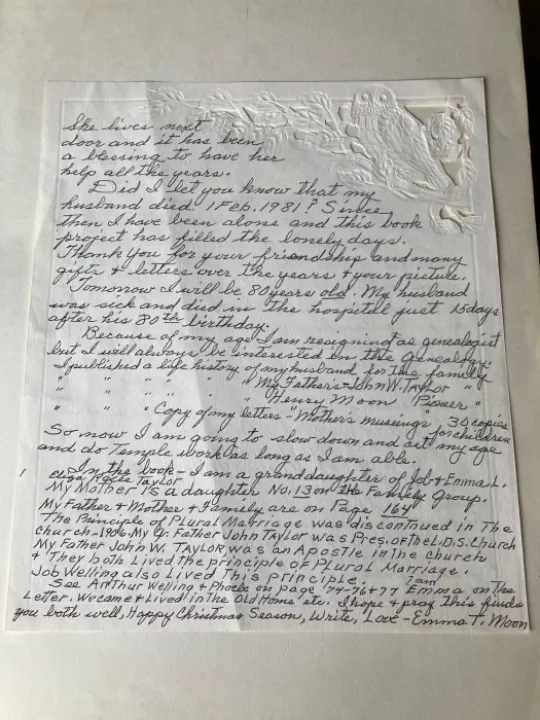 She lives next
door and it has been
a blessing to have her
help all the years.
Did I let you know that my
husband died 1 Feb, 1981? Since
then I have been alone and this book
project has filled the lonely days.
Thank you for your friendship and many
gifts & letters over the years & your picture.
Tomorrow I will be 80 years old. My husband
was sick and died in the hospital just 15 days
after his 80th birthday.
Because of my age I am resigning as genealogist
but I will always be interested in the genealogy.
I published a life history of my husband for the family
" " " " " " My Father-John W. Taylor "
" " " " " Henry Moon "Pioneer"
" " " Copy of my letters-"Mother's musings" 30 copies
for children
So now I am going to slow down and act my age
and do Temple work as long as I am able.
In the book - I am a granddaughter of Job & Emma L.
Roxie Taylor
My Mother is a daughter No. 13 on the Family Group.
My Father & Mother & Family are on Page 164
The Principle of Plural Marriage was discontinued in The
Church-1906. My G. Father John Taylor was Pres. of the L.D.S. Church
My Father John W. TAYLOR, was an Apostle in the church
& They both Lived the principle of Plural Marriage.
Job Welling also Lived This principle.
I am
See Arthur Welling & Phoebe on page 74-76+77 Emma on The
Letter. We came & Lived in The Old Home etc. I hope & pray this finds
you both well, Happy Christmas Season, Write, Love - Emma T. Moon